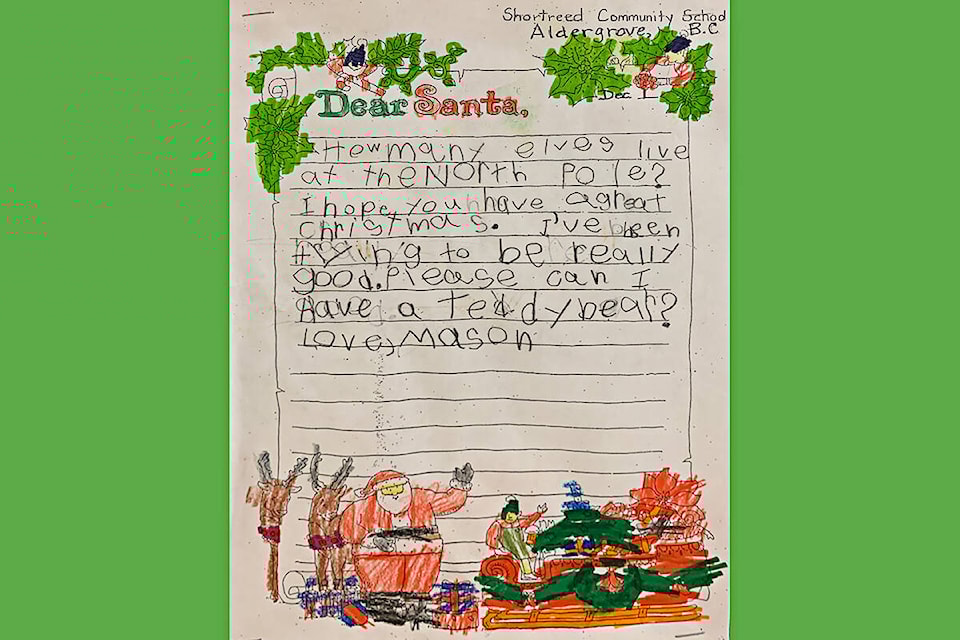 Shortreed Community School
Aldergrove, B.C
Dec 1
Dear Santa,
How many elves live
at the North Pole?
I hope you have a great
Christmas. I've been
trying to be really
good. Please can I
Have a teddy bear?
Love, Mason